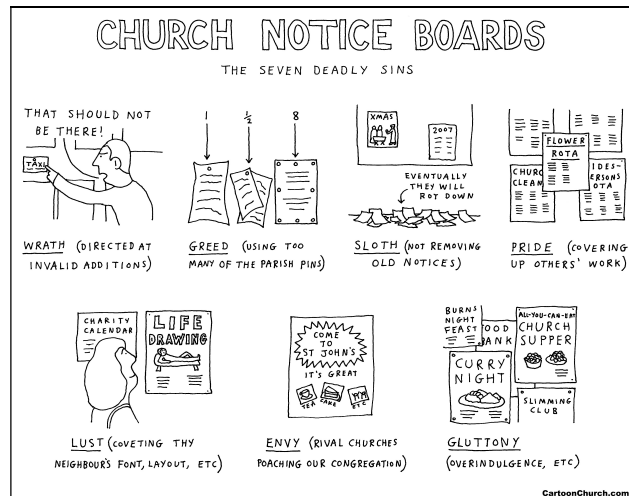 CHURCH NOTICE BOARDS
THE SEVEN DEADLY SINS
THAT SHOULD NOT
BE THERE!
TAXI
WRATH (DIRECTED AT
INVALID ADDITIONS)
1
½
8
GREED (USING TOO
MANY OF THE PARISH PINS)
XMAS
2007
EVENTUALLY
THEY WILL
ROT DOWN
SLOTH (NOT REMOVING
OLD NOTICES)
FLOWER
ROTA
CHURC
CLEAN
IDES-
ERSONS
OTA
PRIDE (COVERING
UP OTHERS' WORK)
CHARITY
CALENDAR
LIFE
DRAWING
LUST (COVETING THY
NEIGHBOUR'S FONT, LAYOUT, ETC)
COME
TO
ST JOHN'S
IT'S GREAT
TEA CAKE ETC
ENVY (RIVAL CHURCHES
POACHING OUR CONGREGATION)
BURNS
NIGHT
FEAST
OOD
ANK
ALL-YOU-CAN-EAT
CHURCH
SUPPER
CURRY
NIGHT
SLIMMING
CLUB
GLUTTONY
(OVERINDULGENCE, ETC)
CartoonChurch.com